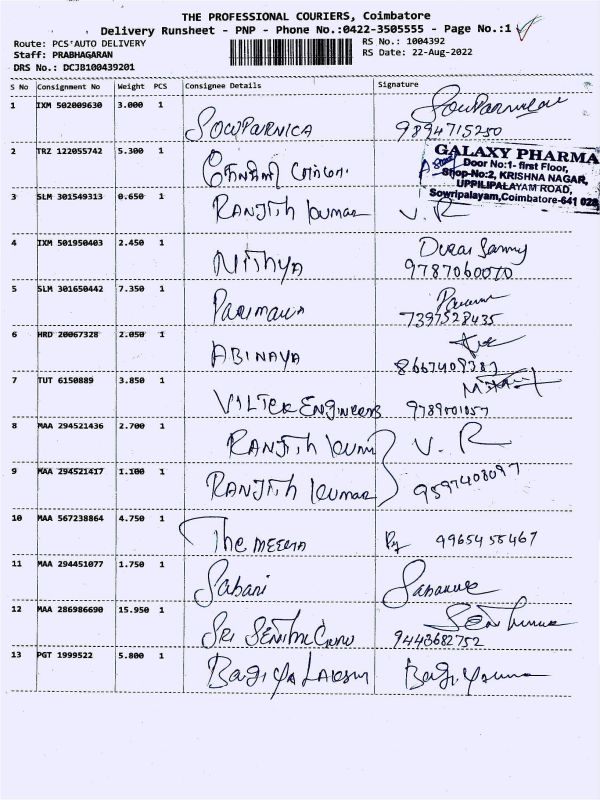 THE PROFESSIONAL COURIERS, Coimbatore
Delivery Runsheet - PNP - Phone No.:0422-3505555 - Page No.:1
Route: PCS AUTO DELIVERY
RS No.: 1004392
Staff: PRABHAGARAN
RS Date: 22-Aug-2022
DRS No.: DCJB100439201
S No Consignment No Weight PCS Consignee Details Signature
1 IXM 502009630 3.000 1 SOWPARNICA 9894715250
2 TRZ 122055742 5.300 1
GALAXY PHARMA
Door No:1- first Floor,
Shop-No:2, KRISHNA NAGAR,
UPPILIPALAYAM ROAD,
Sowripalayam,Coimbatore-641 028
3 SLM 301549313 0.650 1 RANJith kumar V. R
4 IXM 501950403 2.450 1 NIThYA Durai Samy
9787060070
5 SLM 301650442 7.350 1 PARIMALA
7397528435
6 HRD 20067328 2.050 1 ABINAYA
7 TUT 6150889 3.850 1 VILTER ENGineers 9789001057
8 MAA 294521436 2.700 1 RANJith kum V. R
9 MAA 294521417 1.100 1 RANJith kumar 9597408097
10 MAA 567238864 4.750 1 The MEERA 9965455467
11 MAA 294451077 1.750 1 Sabari
12 MAA 286986690 15.950 1 SRI SENTHIL GURU 9443682752
13 PGT 1999522 5.800 1 BAGIYA LAKSMI